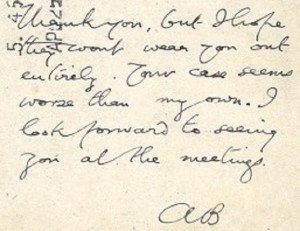 thank you, but I hope
they won't wear you out
entirely. Your case seems
worse than my own. I
look forward to seeing
you at the meetings.
AB